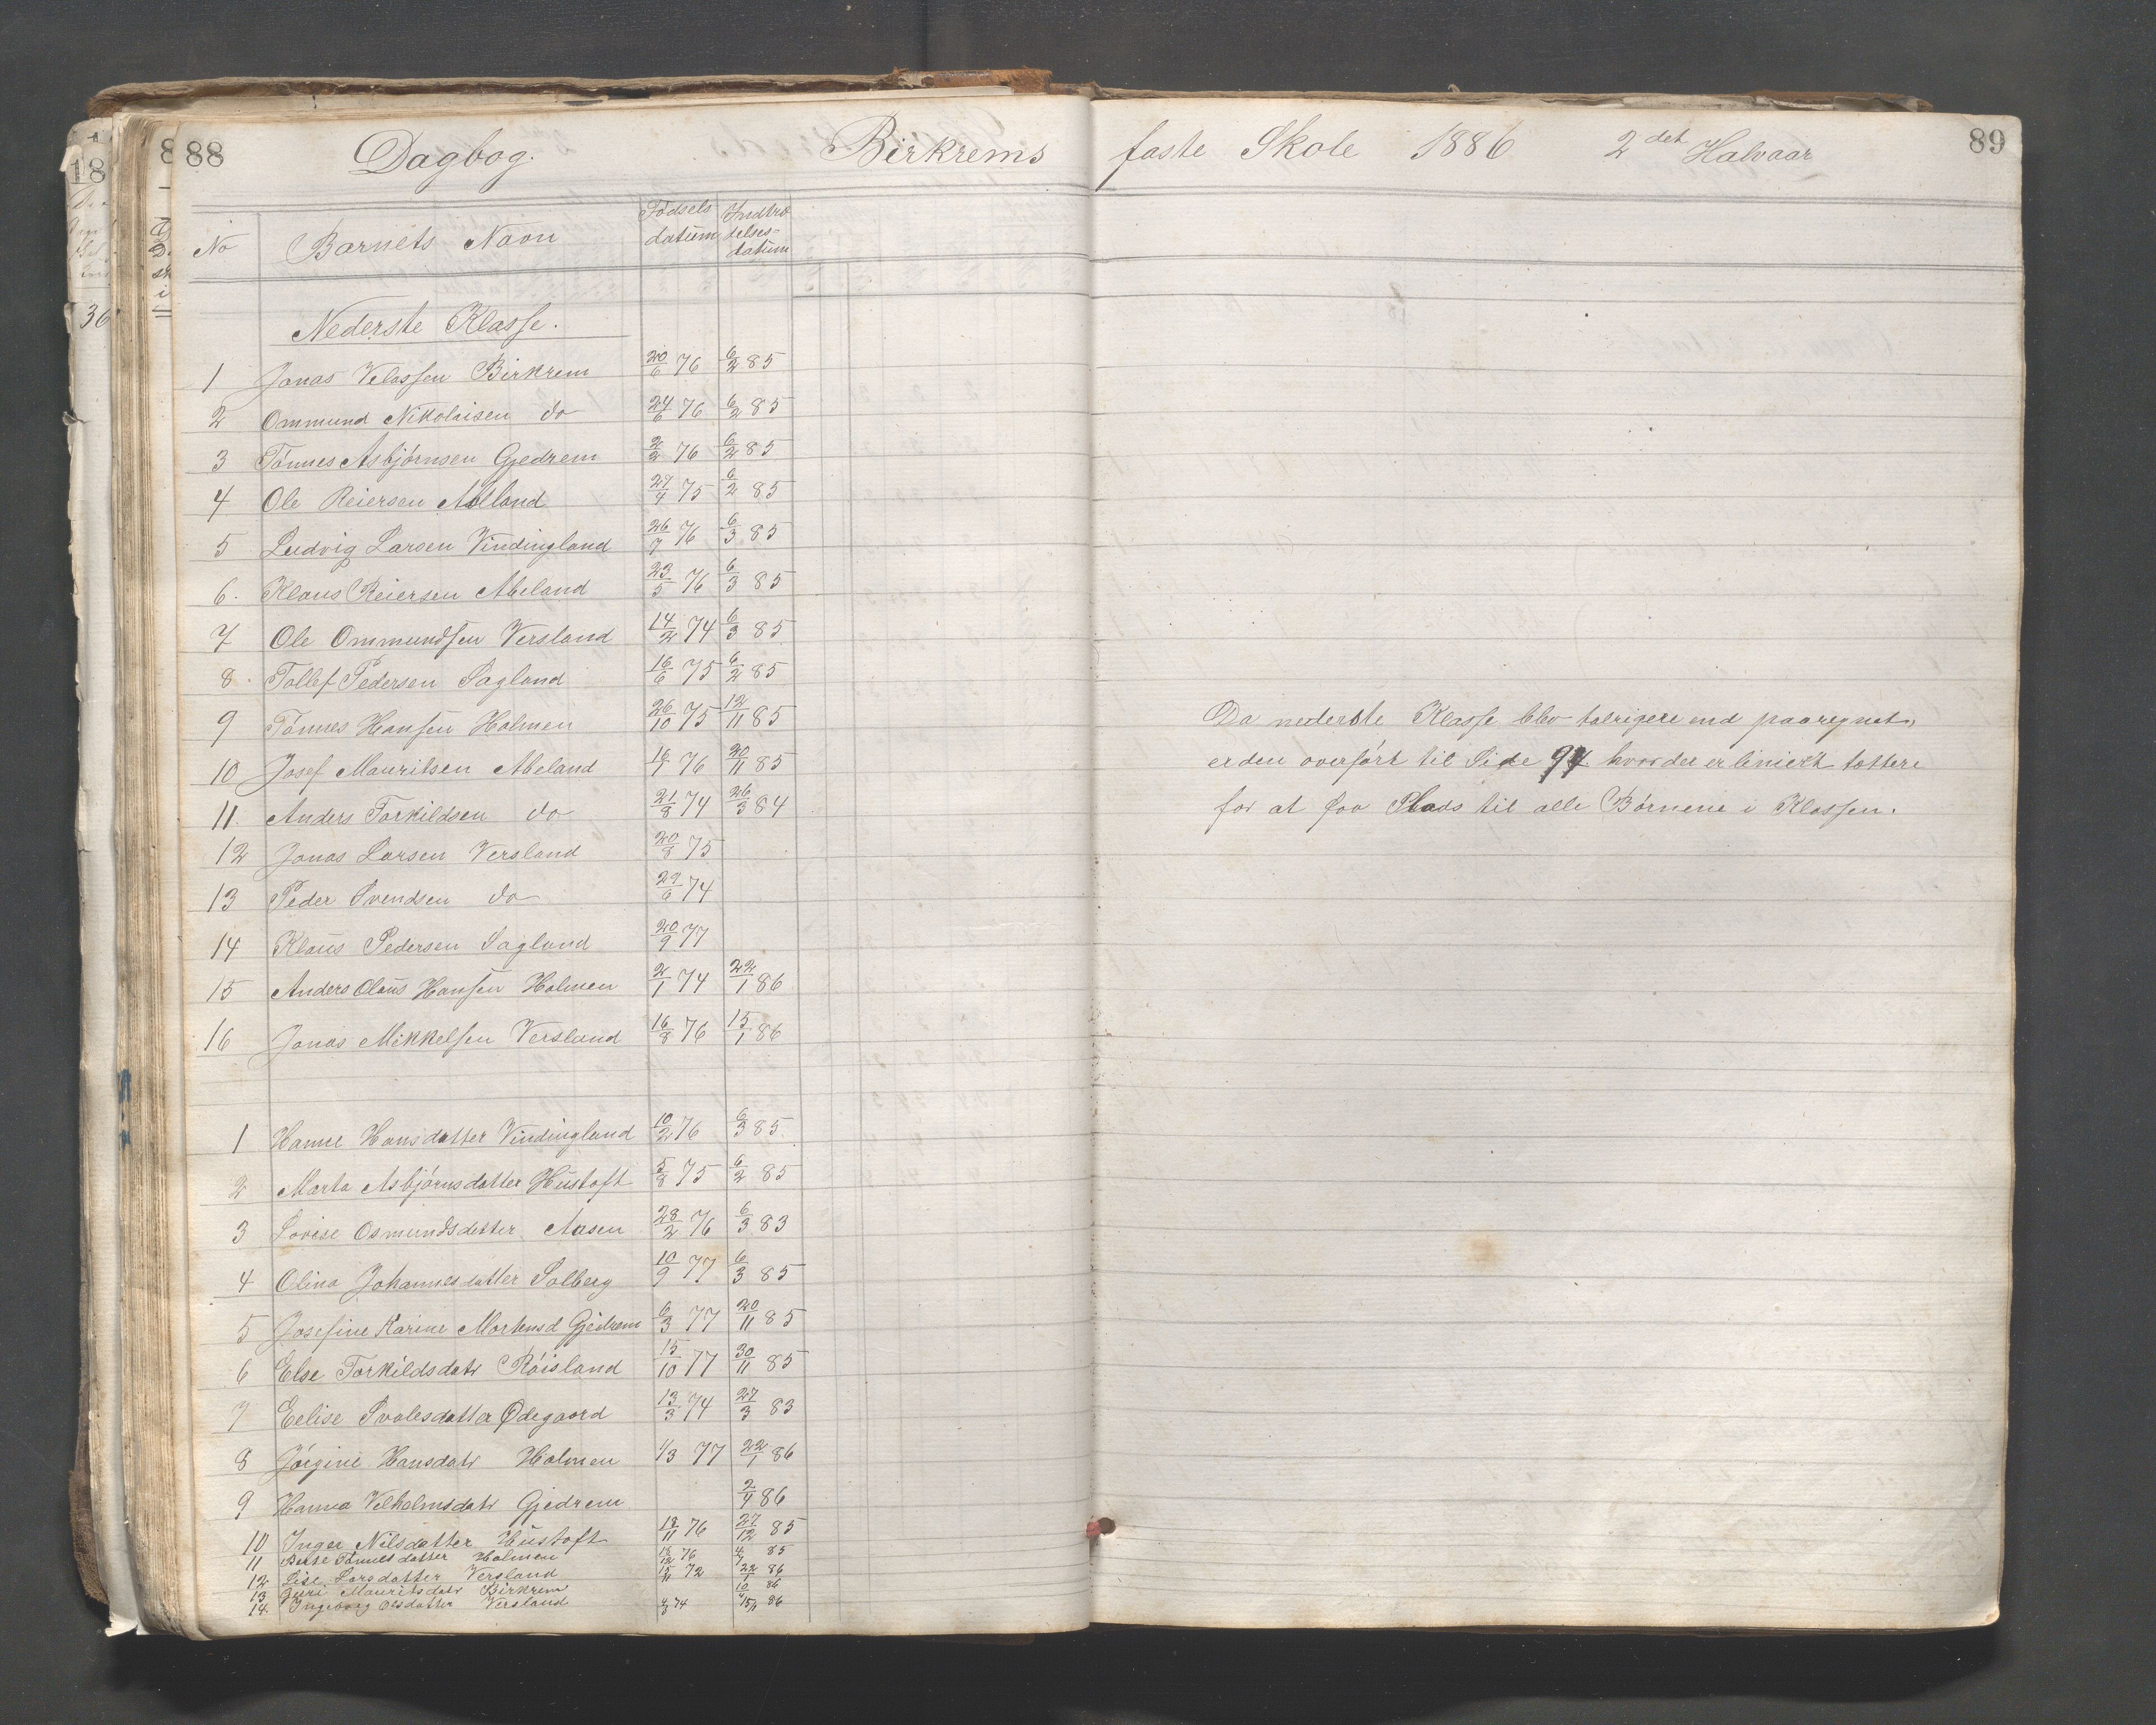 88 Dagbog. Birkrems faste Skole 1886 2det Halvaar 89
No Barnets Navn Fødsels datum Indtrædelses= datum
Nederste Klasse.
1 Jonas Velassen Birkrem 20/6 76 6/2 85
2 Ommund Nikolaisen do 24/6 76 6/2 85
3 Tønnes Asbjørnsen Gjedrem 2/2 76 6/2 85
4 Ole Reiersen 27/4 75 6/2 85
5 Ludvig Larsen Vindingland 26/7 76 6/3 85
6. Klaus Reiersen Abeland 23/5 76 6/3 85
7 Ole Ommundsen Versland 14/2 74 6/3 85
8. Tollef Pedersen Sagland 16/6 75 6/2 85
9 Tønnes Hansen Holmen 26/10 75 12/11 85
10 Josef Mauritsen Abeland 16/1 76 20/11 85
11. Anders Torkildsen do 21/8 74 26/3 84
12 Jonas Larsen Versland 20/8 75
13 Peder Svendsen do 29/6 74
14 Klaus Pedersen Sagland 20/9 77
15 Anders Olaus Hansen Holmen 2/1 74 22/1 86
16 Jonas Mikkelsen Versland 16/8 76 15/1 86
1 Hanne Hansdatter Vindingland 10/2 76 6/3 85
2 Marta Asbjørnsdatter Hustoft 5/8 75 6/2 85
3 Lovise Osmundsdatter Aasen 28/2 76 6/3 83
4 Olina Johannesdatter Solberg 10/9 77 6/3 85
5 Josefine Karine Mortensd Gjedrem 6/3 77 20/11 85
6 Else Torkildsdatr Røisland 15/10 77 30/11 85
7 Eelise Svalesdatter Ødegaard 13/3 74 27/3 83
8 Jørgine Hansdatr Holmen 1/3 77 22/1 86
9 Hanna Velhelmsdatr Gjedrem 2/4 86
10 Inger Nilsdatter Hustoft 18/11 76 27/12 85
11 Berte Tønnesdatter Holmen 18/12 76 4/7 85
12. Lise Larsdatter Versland 15/11 72 22/1 86
13 Guri Mauritsdatr Birkrem 86
14. Ingeborg Olsdatter Versland 4/8 74 15/1 86
Da nederste Klasse blev talrigere end paaregnet,
er den overført til Side 94 hvor der er liniert tættere
for at faa Plads til alle Børnene i Klassen.